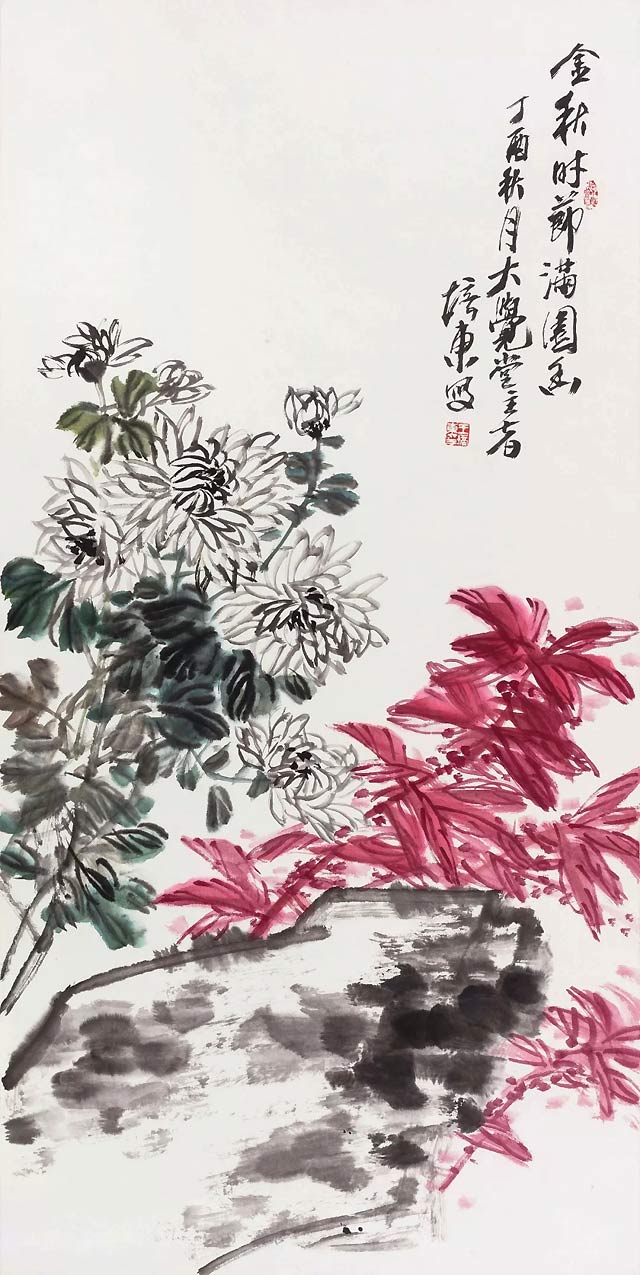 金秋时節滿園
丁酉秋月大覺堂主者
培東写